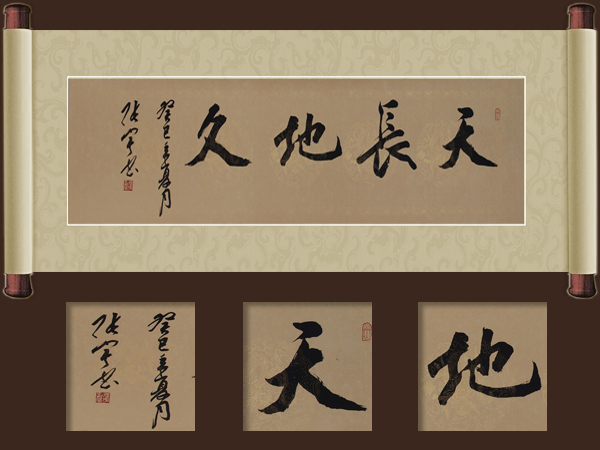 天長地久
癸巳夏月
张书
癸巳夏月
张书
天
地